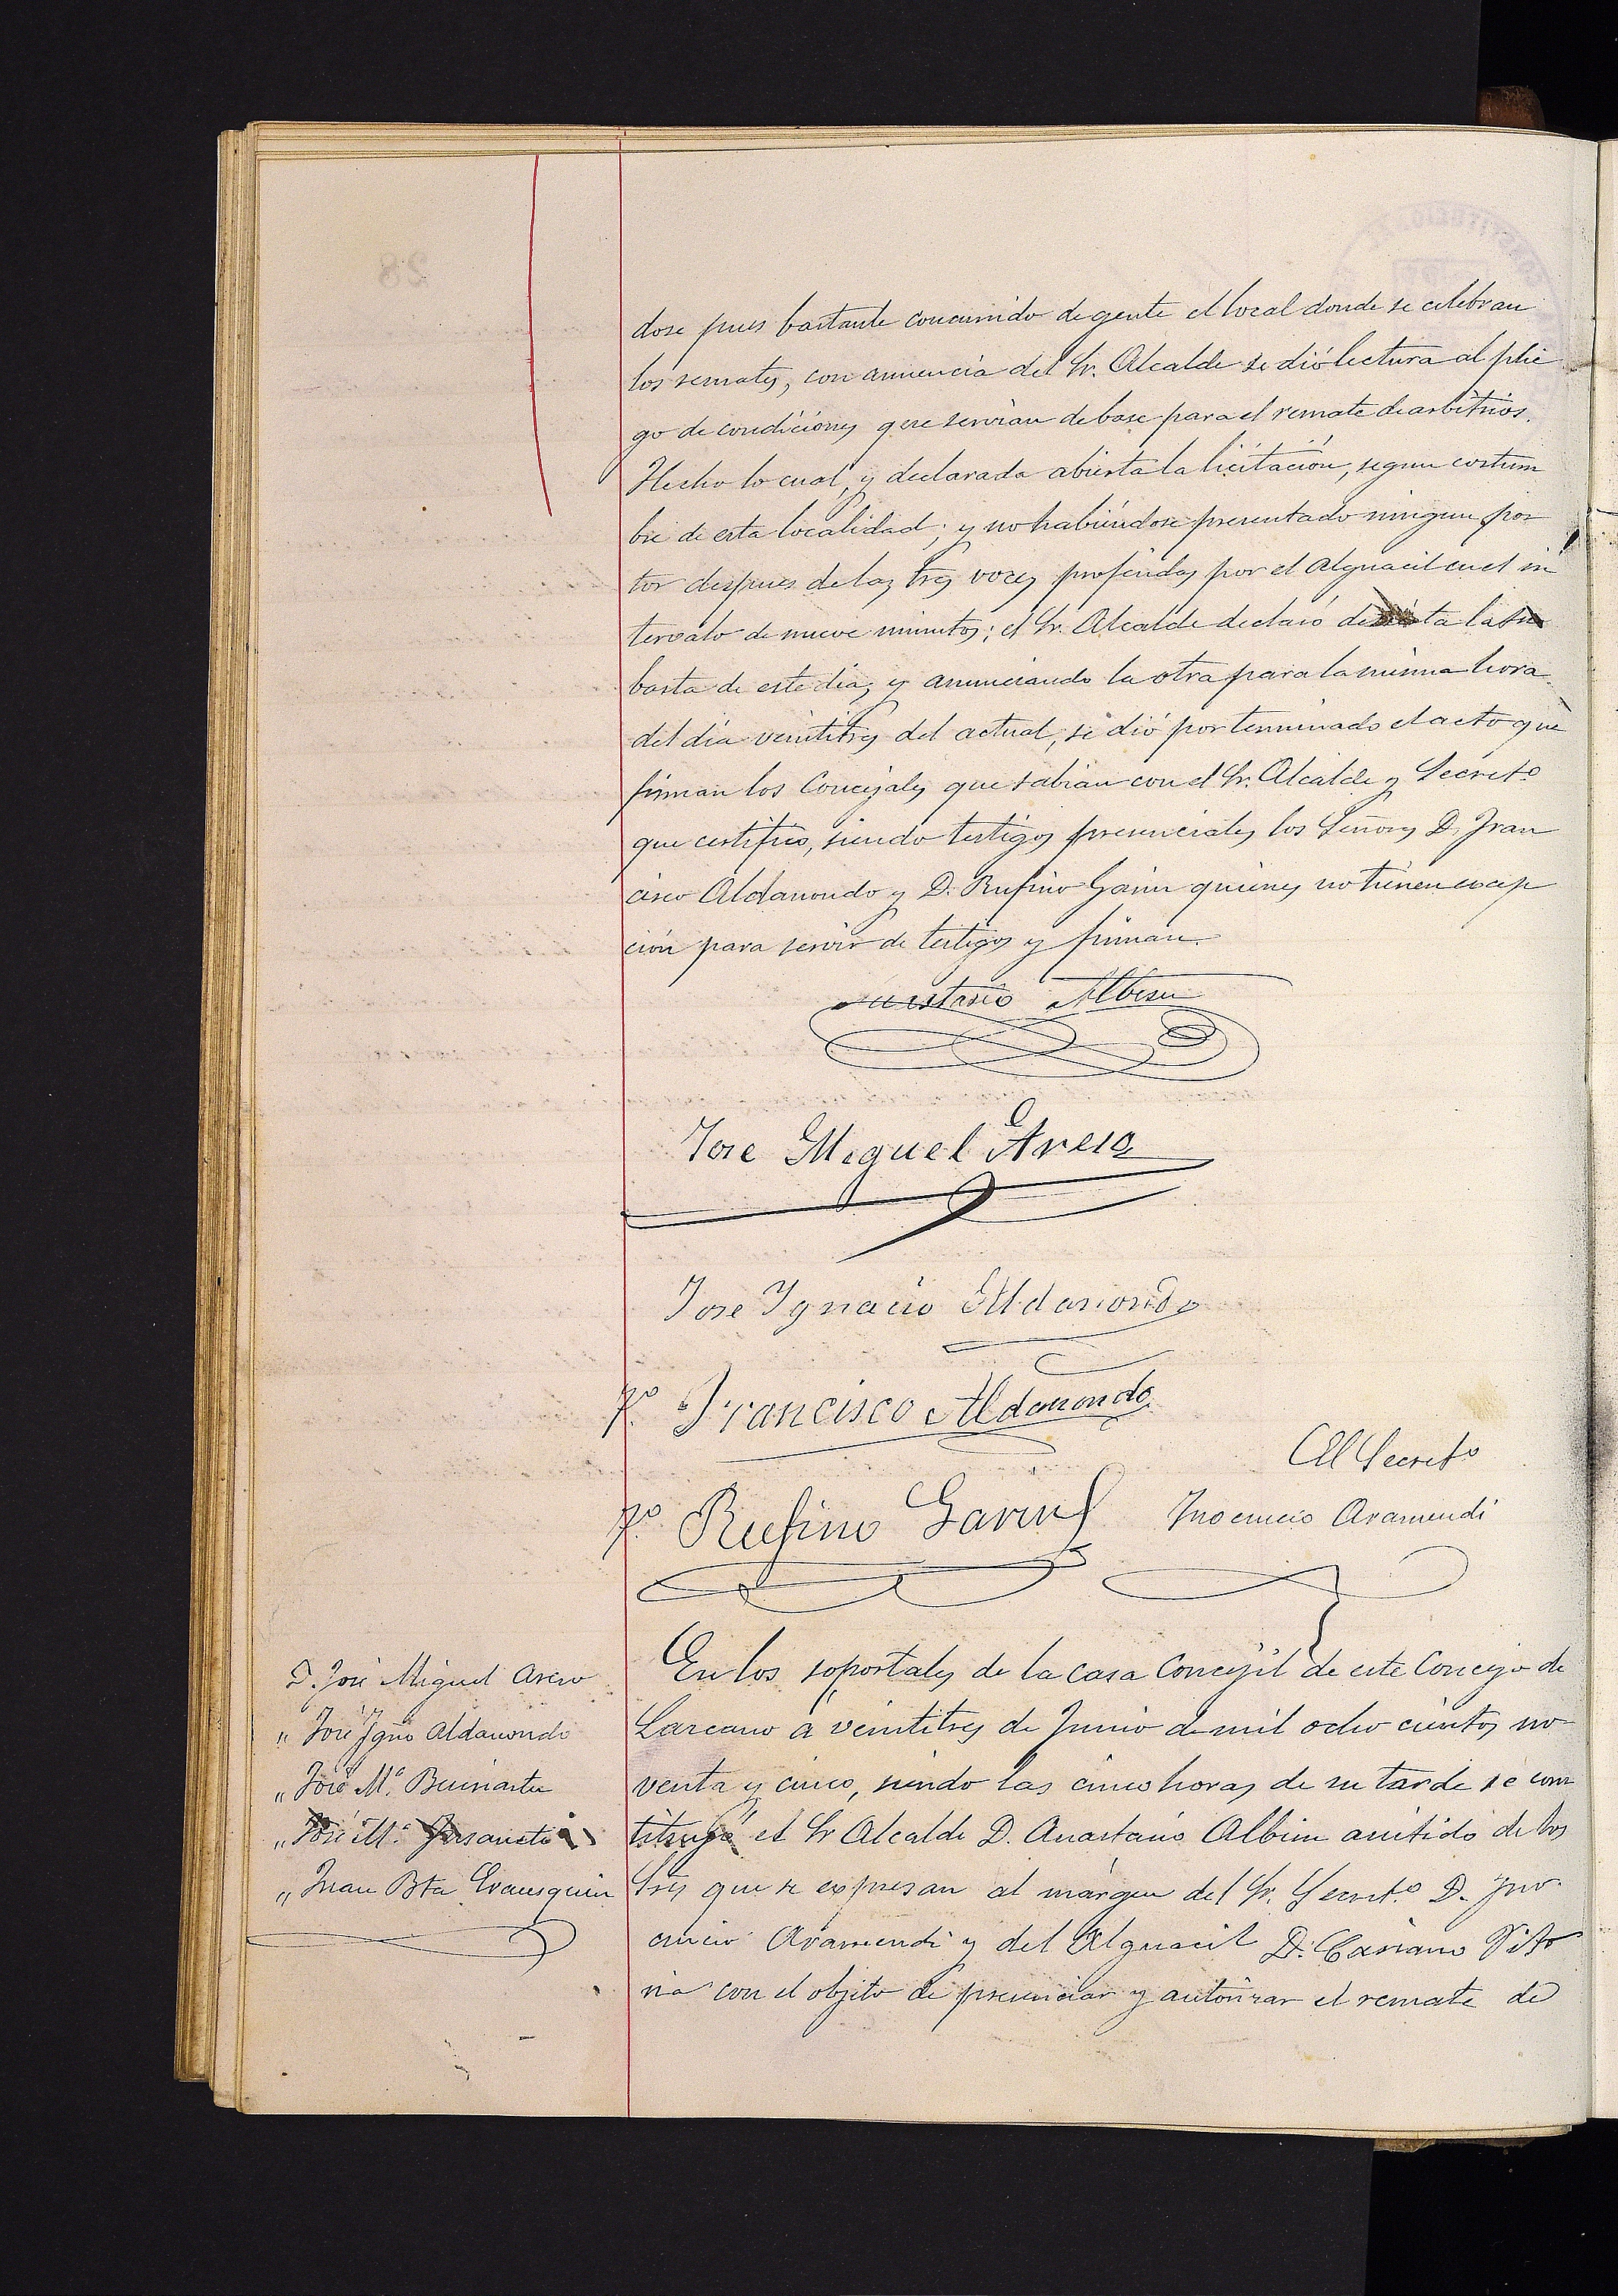 dose pues bastante concurrido de gente el local donde se celebran
los remates, con anuencia del Sr. Alcalde se dió lectura al plie
go de condiciones que servian de base para el remate de arbitrios.
Hecho lo cual, y declarada abierta la licitación, segun costum
bre de esta localidad; y no habiéndose presentado ningun pos
tor despues de las tres voces proferidas por el Alguacil en el in
tervalo de nueve minutos; el Sr. Alcalde declaró desierta la su
basta de este dia, y anunciando la otra para la misma hora
del dia veintitres del actual, se dió por terminado el acto que
firman los Concejales que sabian con el Sr. Alcalde y Secretº
que certifico, siendo testigos presenciales los Señores D. Fran
cisco Aldanondo y D. Rufino Garin quienes no tienen excep
ción para servir de testigos y firman.
Anastasio Albisu
Jose Miguel
Jose Ygnacio Aldanondo
Tº Francisco Aldanondo
El Secretº
Tº Rufino Garin
Inocencio Aramendi
En los soportales de la casa Concejil de este Concejo de
Lazcano á veintitres de Junio de mil ocho cientos no-
venta y cinco, siendo las cinco horas de su tarde se cons
tituyó el Sr Alcalde D. Anastasio Albisu asistido de los
Sres que se expresan al márgen del Sr. Secretº D. Ino-
cencio Aramendi y del Alguacil D. Casiano Vito
ria con el objeto de presenciar y autorizar el remate de
D. José Miguel
" José Ygnº Aldanondo
" José Mª
" José Mª
" Juan Bta Erausquin